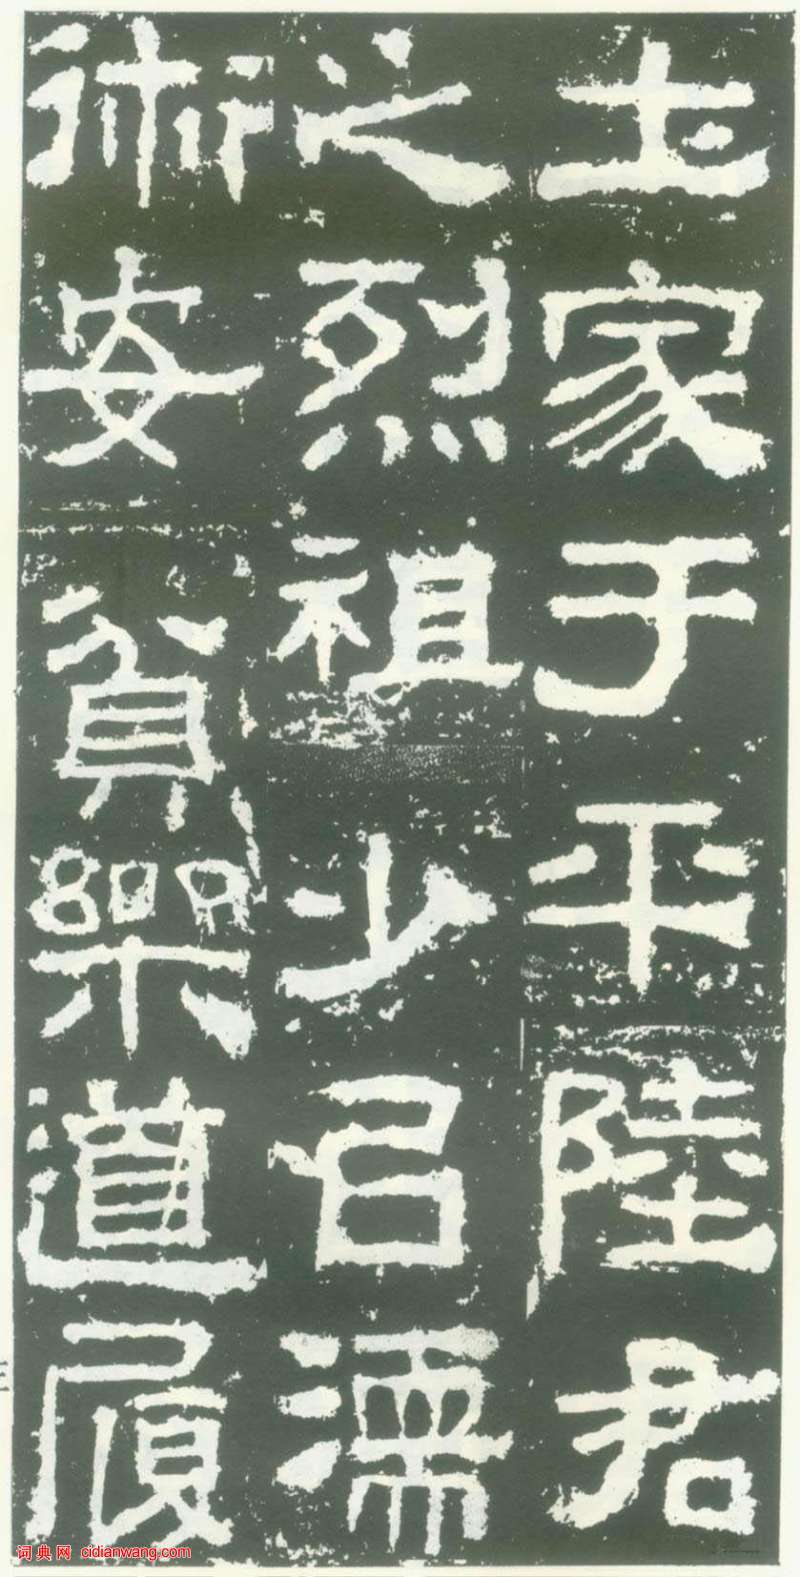 土家于平陸君
之烈祖少㠯濡
術安貧樂道履
三
词典网 cidianwang.com